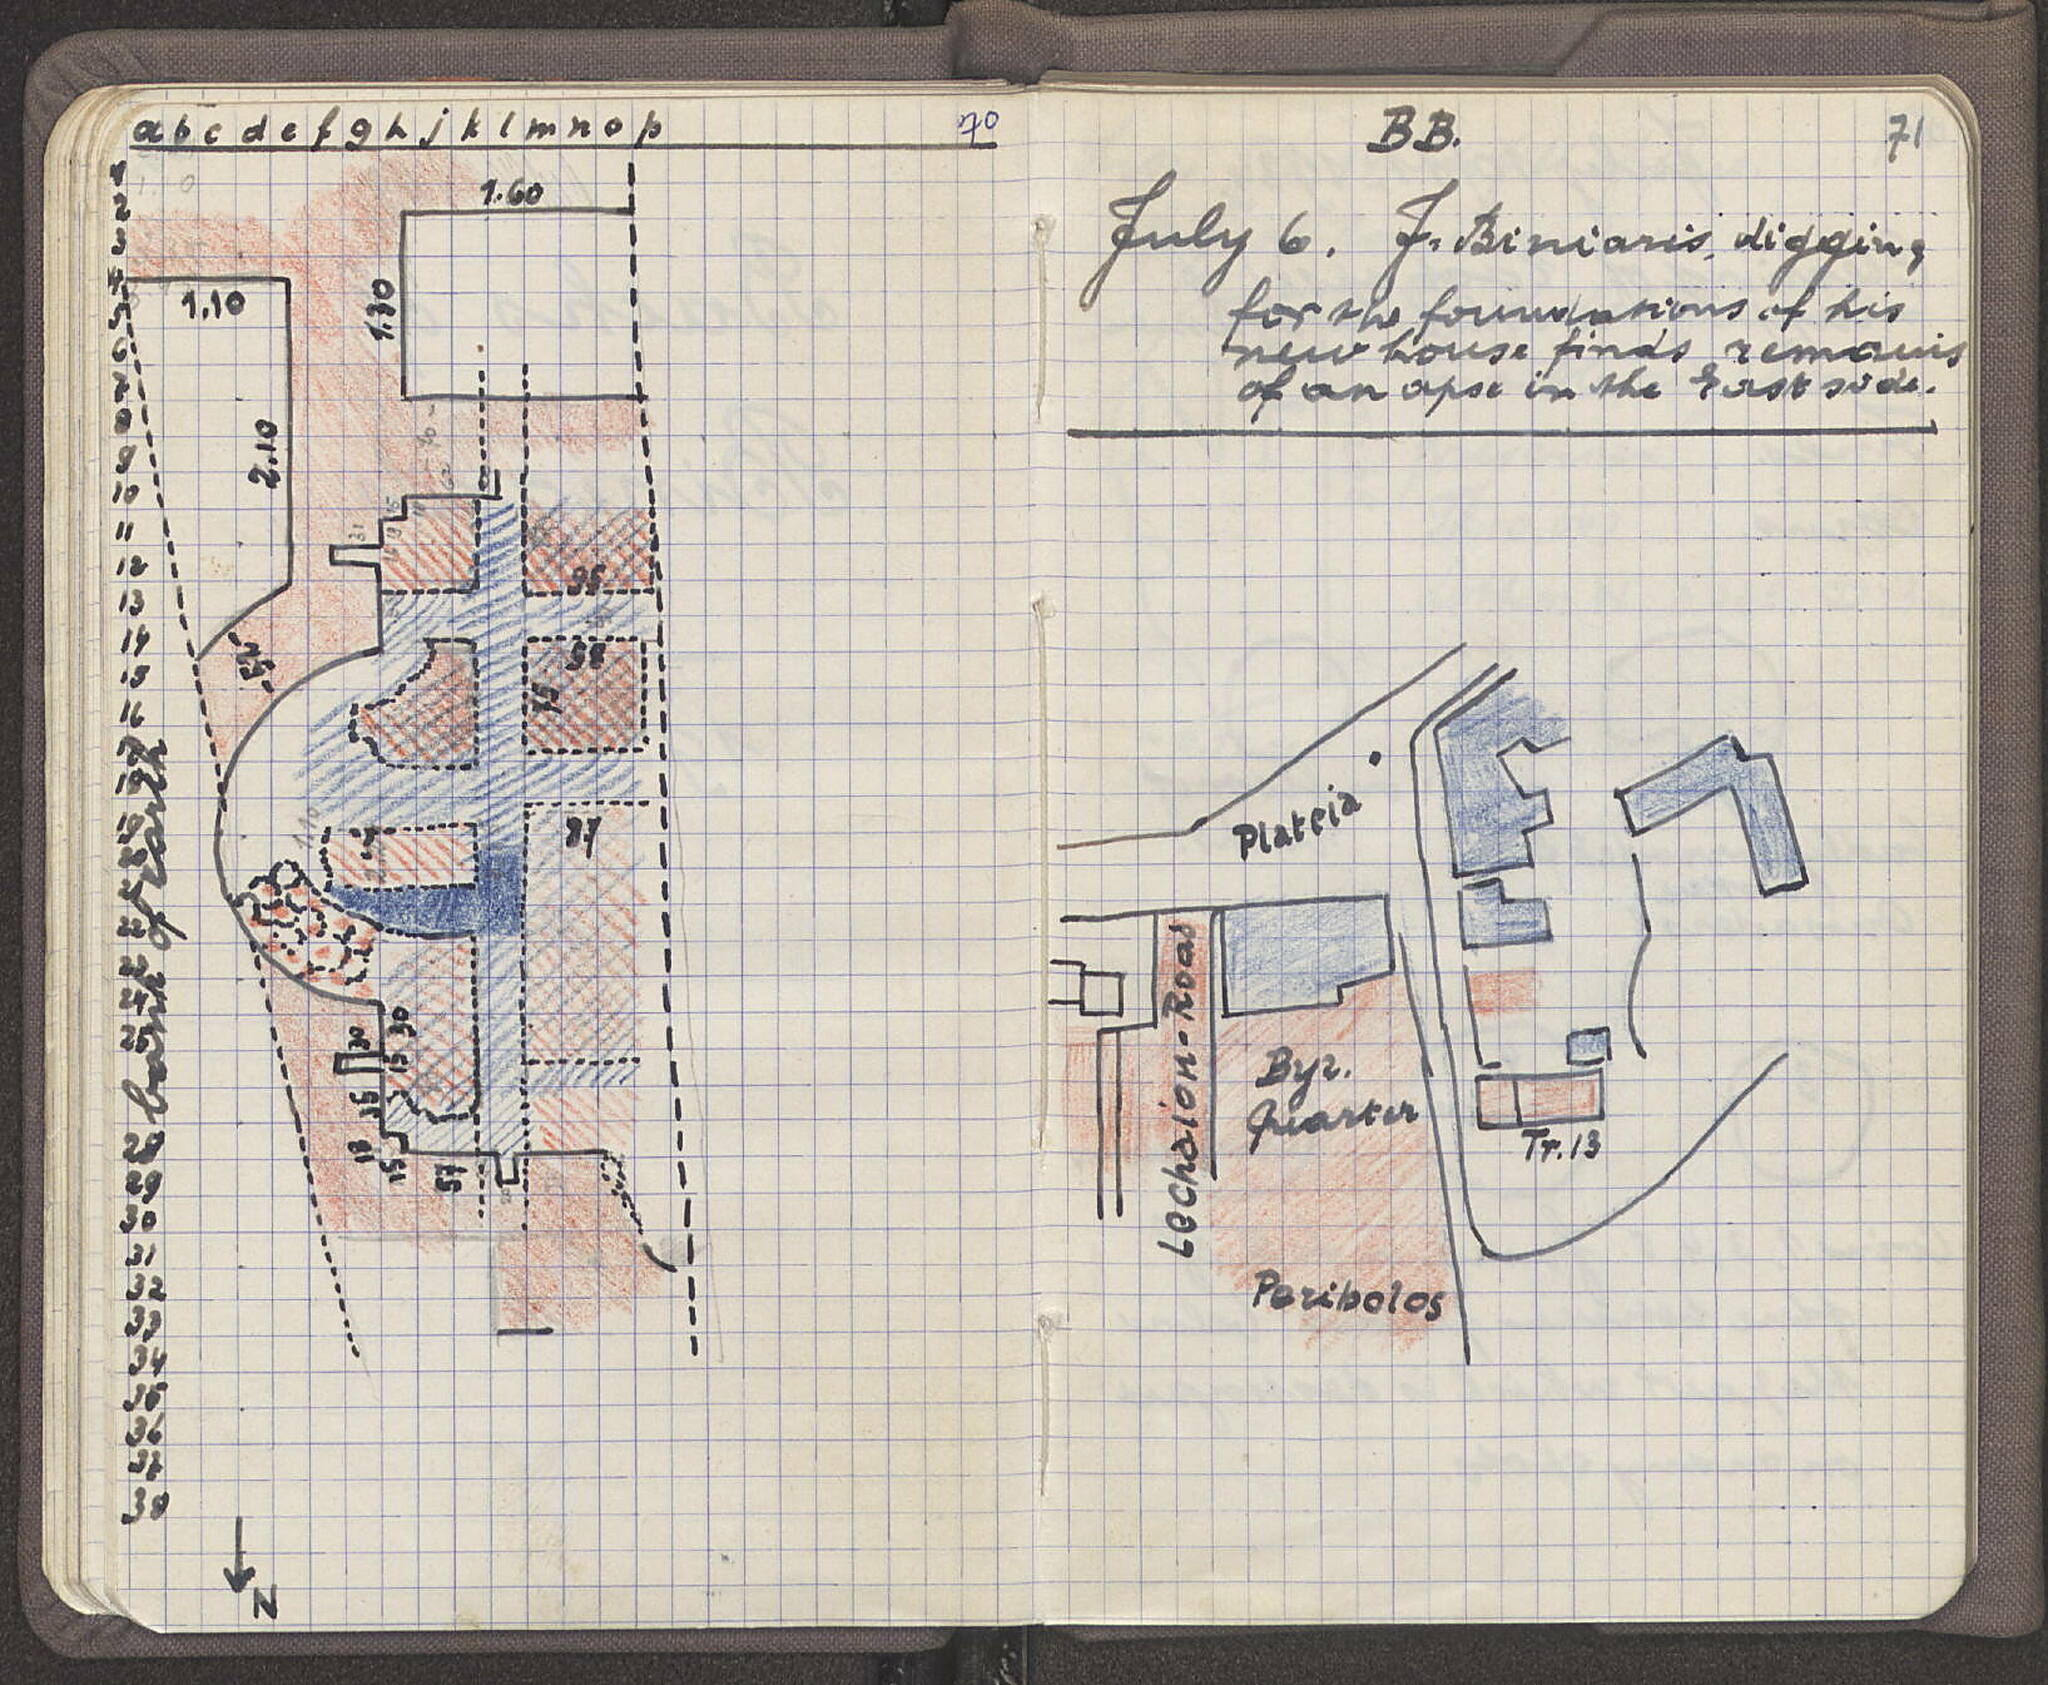 a b c d e f g h j k l m n o p
70
1
2
3
4
5
6
7
8
9
10
11
12
13
14
15
16
17
18
19
20
21
22
23
24
25
28
29
30
31
32
33
34
35
36
37
38
bank of earth
1.60
1.10
2.10
95
98
75
97
30
30
15
15
57
N
BB.
71
July 6. J. Biniaris, digging
for the foundations of his
new house finds remains
of an apse in the East side.
Plateia
Lechaion-Road
Byz.
Quarter
Tr. 13
Peribolos